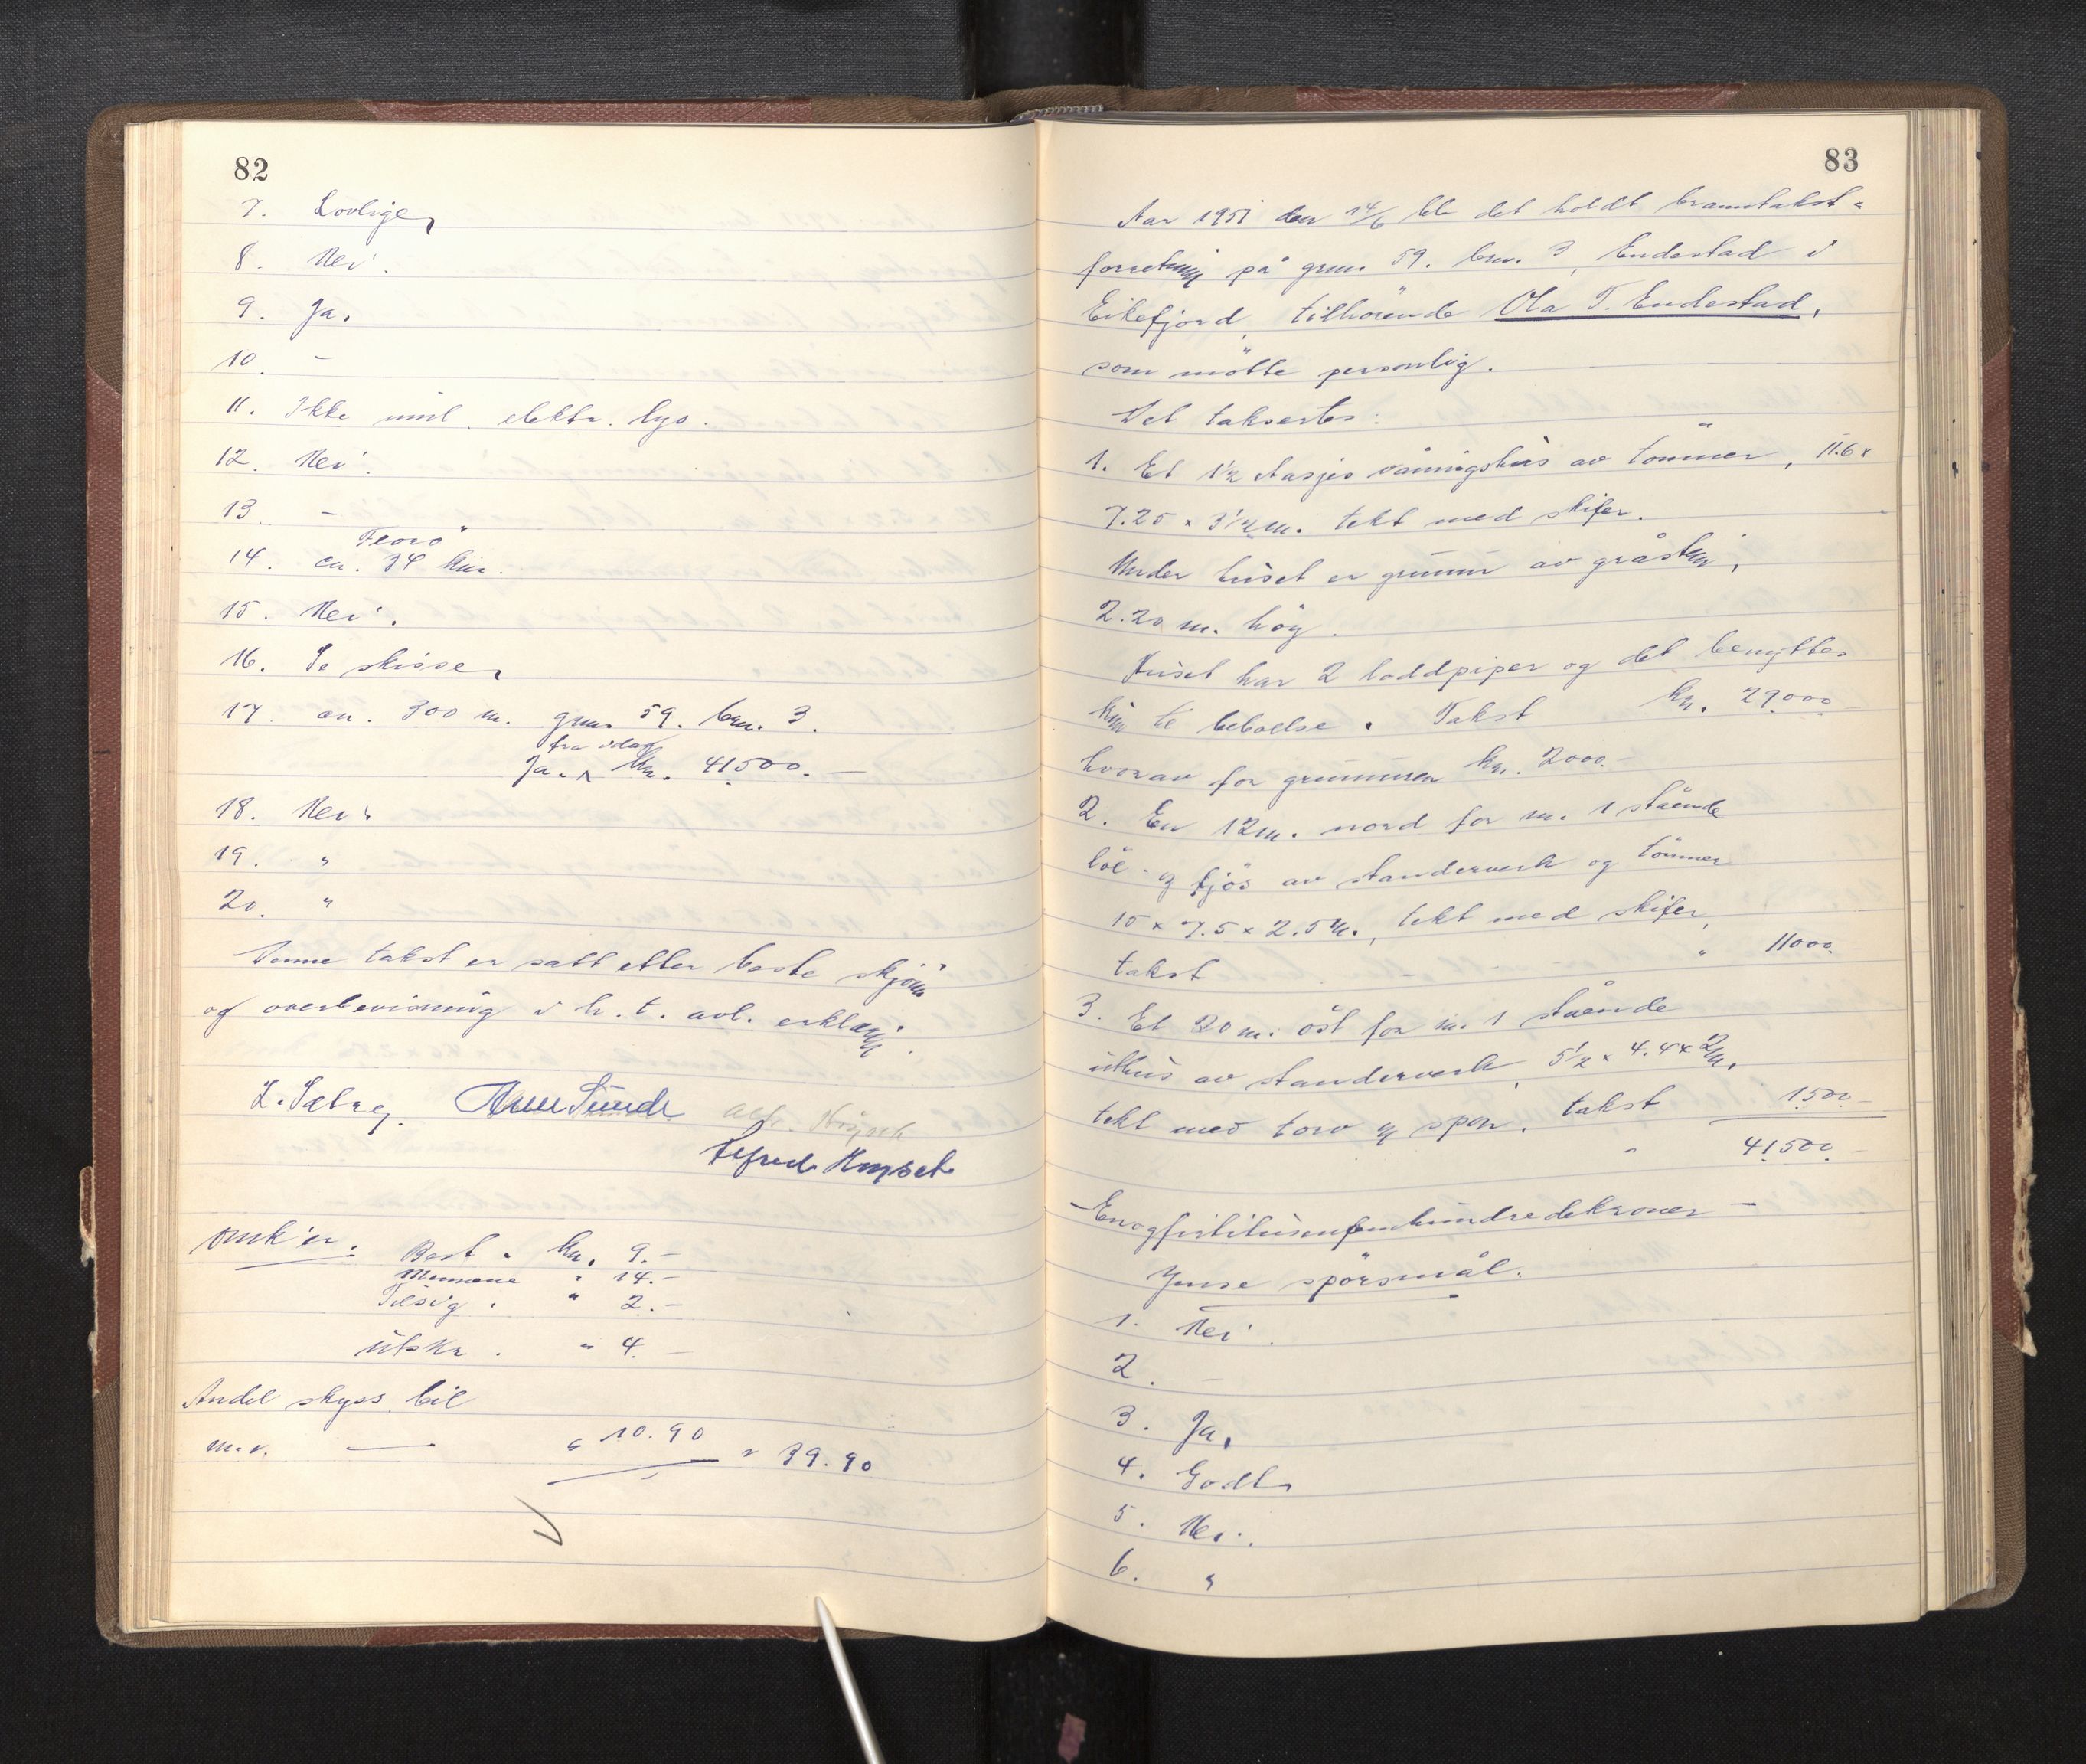 82
7. Lovlige,
8. Nei.
9. Ja.
10. -
11. Ikke innl. elektr. lys.
12. Nei.
13. -
Florö
14. ca. 34 km.
15. Nei.
16. Se skisse,
17. ca. 300 m. gnr. 59. bnr. 3.
fra idag
Ja. kr. 41500.-
18. Nei.
19. "
20. "
Denne takst er satt etter beste skjönn
og overbevisning i h. t. avl. erklæring.
L. Sæbrg. Sunde
Alfred Husset
Omk'er:
Best. kr. 9.-
Mennene " 14.-
Tilsig. " 2.-
Utskr. " 4.-
Andel skyss bil
m.v. — " 10.90 " 39.90
83
Aar 1951 den 14/6 ble det holdt branntakst-
forretning på gnr. 59. bnr. 3, Endestad i
Eikefjord, tilhörende Ola T. Endestad,
som mötte personlig.
Det taksertes:
1. Et 1½ etasjes våningshus av tömmer, 11.6 x
7.25 x 3½ m. tekt med skifer.
Under huset er grunnmur av gråsten,
2.20 m. höy.
Huset har 2 loddpiper og det benyttes
kun til beboelse. Takst kr. 29000.
hvorav for grunnmuren kr. 2000.-
2. En 12 m. nord for nr. 1 stående
löe- og fjös av standerverk og tömmer
15 x 7.5 x 2.5 m., tekt med skifer,
takst " 11000.-
3. Et 20 m. öst for nr. 1 stående
uthus av standerverk, 5½ x 4.4 x 2 m,
tekt med torv og spon, takst 1500.-
" 41500.-
Enogfirtitusenfemhundredekroner —
Ymse spörsmål.
1. Nei.
2. -
3. Ja,
4. Godt,
5. Nei.
6. "